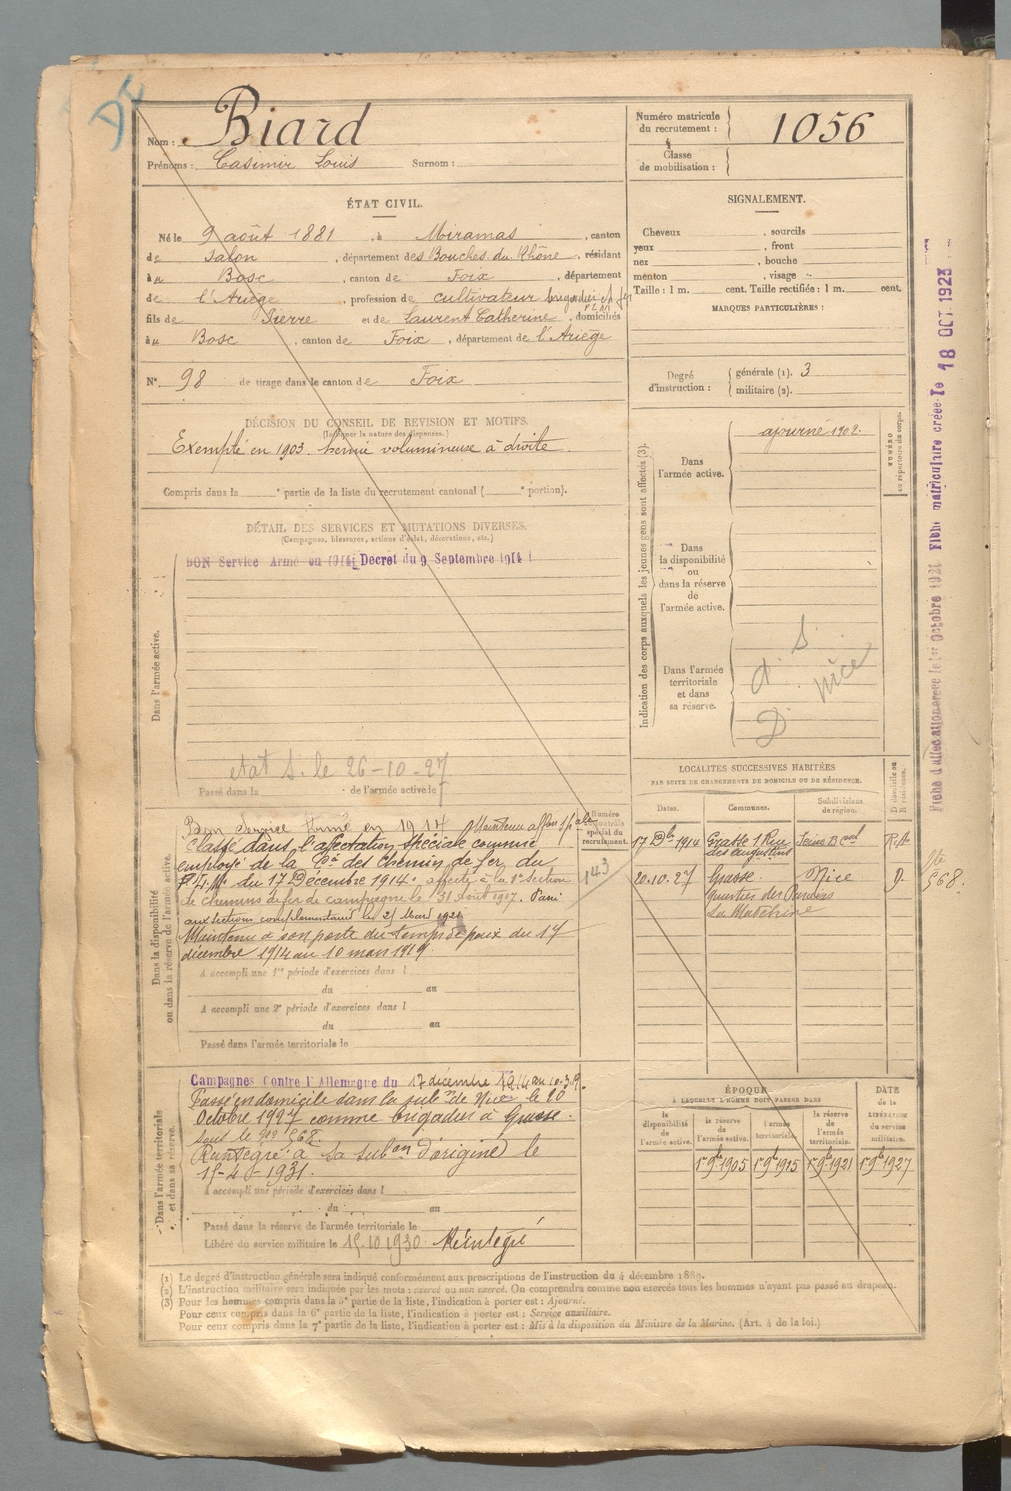 Nom : Biard
Prénoms : Casimir Louis Surnom :
Numéro matricule du recrutement : 1056
Classe de mobilisation :
ÉTAT CIVIL.
Né le 9 août 1881, à Miramas, canton
de Salon, département des Bouches du Rhône, résidant
à u Bosc, canton de Foix, département
de l'Ariège, profession de cultivateur brigadier
fils de Pierre et de Laurent Catherine, domiciliés
à u Bosc, canton de Foix, département de l'Ariège
N° 98 de tirage dans le canton de Foix
SIGNALEMENT.
Cheveux , sourcils
yeux , front
nez , bouche
menton , visage
Taille : 1 m. cent. Taille rectifiée : 1 m. cent.
MARQUES PARTICULIÈRES :
Degré d'instruction : générale (1). 3
militaire (2).
DÉCISION DU CONSEIL DE REVISION ET MOTIFS.
(Indiquer la nature des dispenses.)
Exempté en 1903 hernie volumineuse à droite
Compris dans la partie de la liste du recrutement cantonal ( portion).
DÉTAIL DES SERVICES ET MUTATIONS DIVERSES.
(Campagnes, blessures, actions d'éclat, décorations, etc.)
Dans l'armée active.
BON Service Armé en 1914 Decret du 9 Septembre 1914
état S. le 26-10-27
Passé dans la de l'armée active le
Indication des corps auxquels les jeunes gens sont affectés (3).
Dans l'armée active.
ajourné 1902.
NUMÉRO au répertoire du corps.
Dans la disponibilité ou dans la réserve de l'armée active.
Dans l'armée territoriale et dans sa réserve.
d. S.
Nice
D.
Fiche d'affectation créée le 1er Octobre 1921 Fiche matriculaire créée le 18 OCT. 1923
Dans la disponibilité ou dans la réserve de l'armée active.
Bon Service Armé en 1914 Maintenu affon spale
Classé dans l'affectation spéciale comme
employé de la Cie des Chemin de fer du
P.L.M. du 17 Décembre 1914. affecté à la 1e Section
de chemins de fer de campagne le 31 août 1917. Passé
aux sections complémentaires le 21 Mars 1921
Maintenu à son poste du temps de paix du 17
décembre 1914 au 10 mars 1919
A accompli une 1re période d'exercices dans l
du au
A accompli une 2e période d'exercices dans l
du au
Passé dans l'armée territoriale le
Numéro au contrôle spécial du recrutement.
143
LOCALITÉS SUCCESSIVES HABITÉES
PAR SUITE DE CHANGEMENTS DE DOMICILE OU DE RÉSIDENCE.
Dates. Communes. Subdivisions de région. D domicile ou R résidence.
17 Dbre 1914 Grasse 1 Rue des augustins
20.10.27 Grasse Nice D.
quartier des
568.
Dans l'armée territoriale et dans sa réserve.
Campagnes Contre l'Allemagne du 17 décembre 1914 au 10.3.19.
Passé en domicile dans la subon de Nice le 20
Octobre 1927 comme brigadier à Grasse.
sous le no 568.
Réintégré à sa subon d'origine le
15-4-1931.
A accompli une période d'exercices dans l
du au
Passé dans la réserve de l'armée territoriale le
Libéré du service militaire le 15.10.1930 Réintégré
ÉPOQUE
À LAQUELLE L'HOMME DOIT PASSER DANS
la disponibilité de l'armée active. la réserve de l'armée active. l'armée territoriale. la réserve de l'armée territoriale. DATE de la LIBÉRATION du service militaire.
1er 9b 1905 1er 9b 1915 1er 9b 1921 1er 9b 1927
(1) Le degré d'instruction générale sera indiqué conformément aux prescriptions de l'instruction du 4 décembre 1889.
(2) L'instruction militaire sera indiquée par les mots : exercé ou non exercé. On comprendra comme non exercés tous les hommes n'ayant pas passé au drapeau.
(3) Pour les hommes compris dans la 5e partie de la liste, l'indication à porter est : Ajourné.
Pour ceux compris dans la 6e partie de la liste, l'indication à porter est : Service auxiliaire.
Pour ceux compris dans la 7e partie de la liste, l'indication à porter est : Mis à la disposition du Ministre de la Marine. (Art. 4 de la loi.)